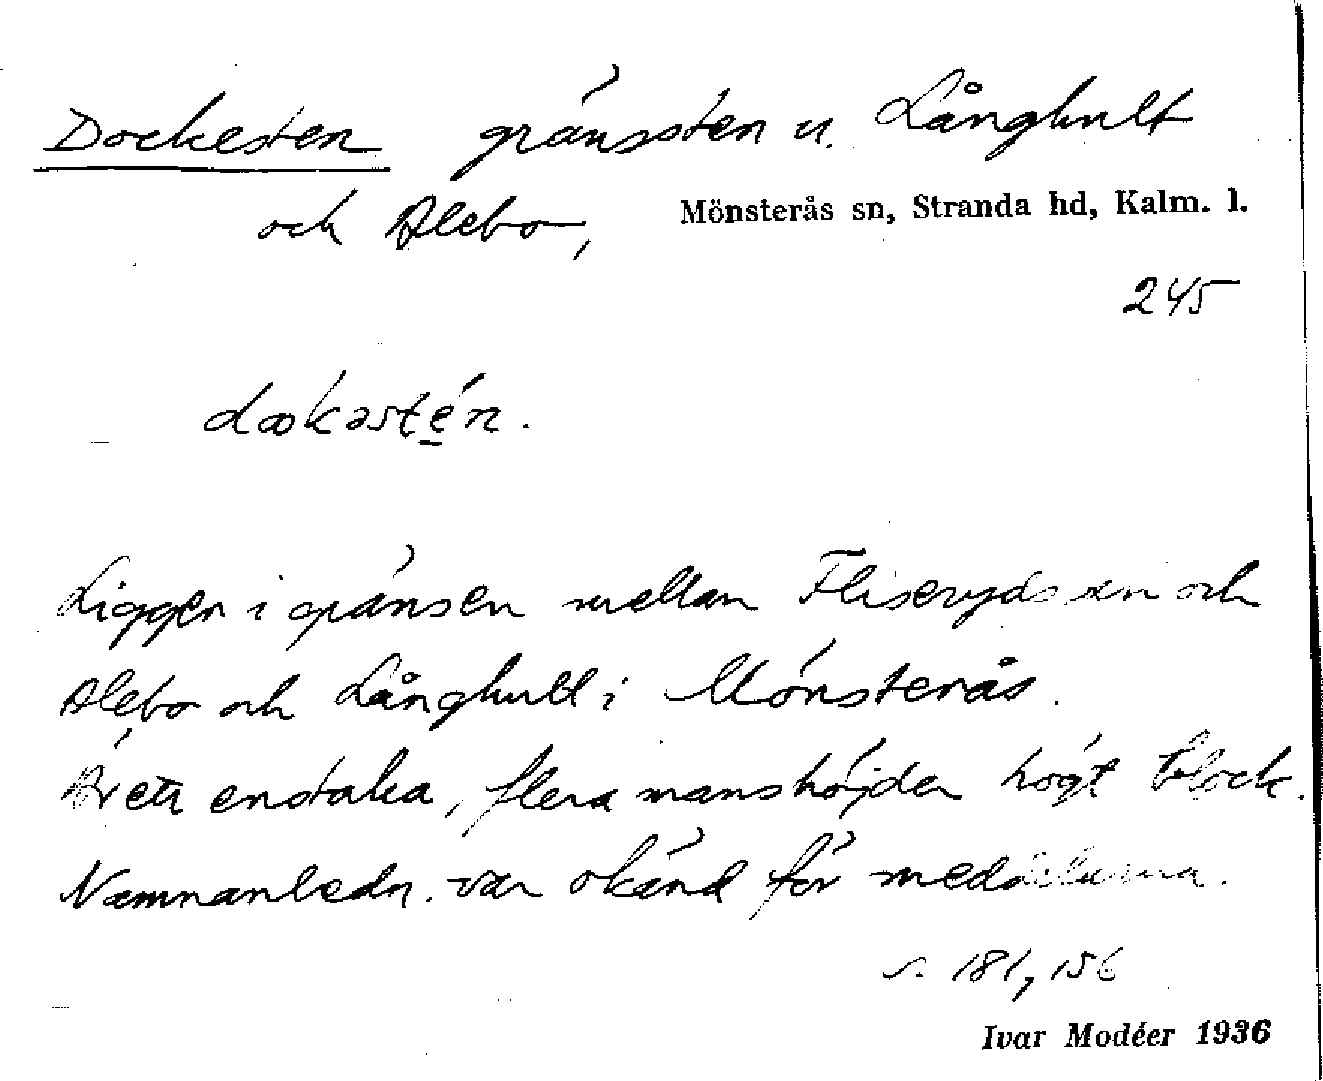 Dockesten gränssten u. Långhult
och Alebo, Mönsterås sn, Stranda hd, Kalm. l.
245
dɷkəstén.
Ligger i gränsen mellan Fliseryds sn och
Alebo och Långhult i Mönsterås.
Är ett enstaka, flera manshöjder högt block.
Namnanledn. var okänd för meddelarna.
s. 181, 156
Ivar Modéer 1936